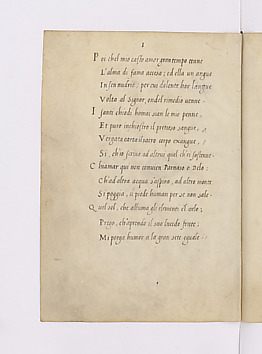 I
Poi chel mio casto amor gran tempo tenne
L'alma di fama accesa; ed ella un angue
In sen nudrio; per cui dolente hor langue
Volta al Signor, onde'l rimedio venne
I santi chiodi homai sian le mie penne,
Et puro inchiostro il pretioso sangue,
Vergata carta il sacro corpo exangue,
Si, ch'io scriva ad altrui quel ch'ei sostenne
Chiamar qui non convien Parnaso o Delo
Ch'ad altra acqua s'aspira, ad altro monte
Si poggia, u piede human per se non sale
Quel sol, che alluma gli elementi e'l cielo;
Prego, ch'aprendo il suo lucido fonte;
Mi porga humor a la gran sete equale